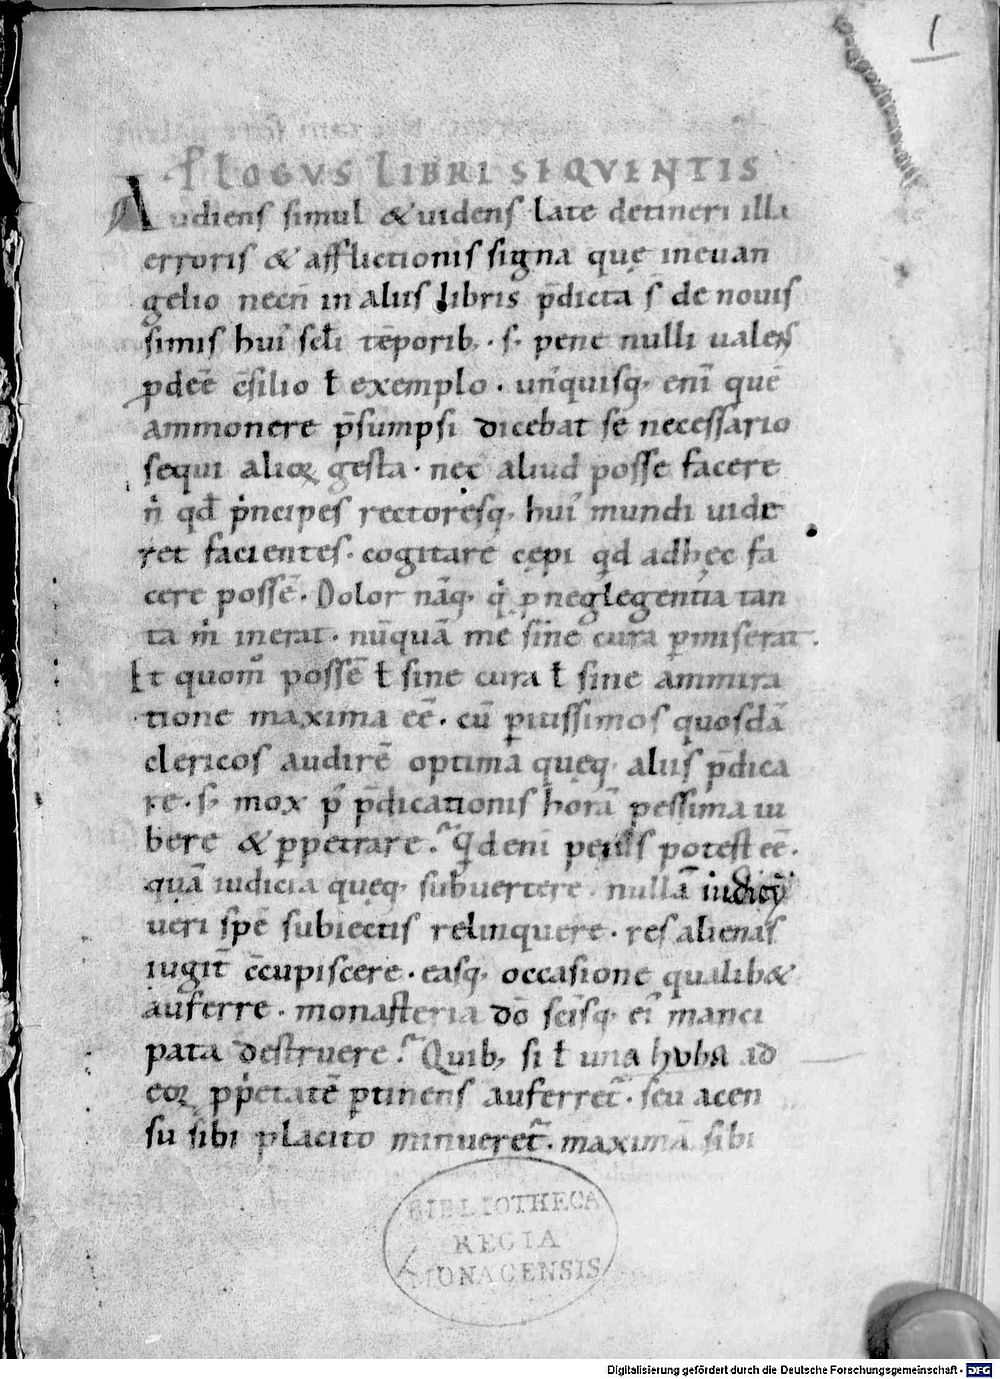 1
PLOGVS LIBRI SEQVENTIS
Audiens simul & uidens late detineri illi
erroris & afflictionis signa quę ineuan
gelio necñ in aliis libris p̄dicta s̄ de nouis
simis hui' sc̄li tēporib. s; pene nulli ualens
pdeē c̄silio ł exemplo. un'quisq; eni quē
ammonere p̄sumpsi dicebat se necessario
sequi alioꝝ gesta. nec aliud posse facere
n̄ qđ p'ncipes rectoresq; hui' mundi uide
ret facientes. cogitare cępi qđ adhęc fa
cere possē. Dolor nāq; q' p neglegentia tan
ta m' inerat. nūquā me sine cura pmiserat.
Et quom° possē ł sine cura ł sine ammira
tione maxima eē. cū puissimos quosdā
clericos audirē optima quęq; aliis p̄dica
re. s; mox p' p̄dicationis horā pessima iu
bere & ppetrare? qđ eni peius potest eē.
quā iudicia quęq; subuertere. nullā iudicij
ueri spē subiectis relinquere. res alienas
iugit' c̄cupiscere. easq; occasione qualib&
auferre. monasteria dō sc̄isq; ei' manci
pata destruere? Quib; si ł una huba ad
eoꝝ p'p'etatē ptinens auferret'. seu acen
su sibi placito minueret'. maximā sibi
BIBLIOTHECA
REGIA
MONACENSIS
Digitalisierung gefördert durch die Deutsche Forschungsgemeinschaft - DFG